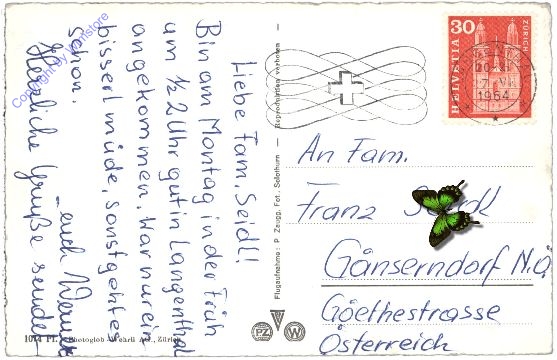 Liebe Fam. Seidl!
Bin am Montag in der Früh
um ½ 2 Uhr gut in Langenthal
angekommen. War nur ein
bisserl müde, sonst geht es
schon.
Herzliche Grüße sendet
euch
An Fam.
Franz
Gänserndorf N.Ö
Goethestrasse
Österreich
HELVETIA
30
ZÜRICH
1964
Reproduktion verboten
Flugaufnahme: P. Zaugg, Fot., Solothurn
PZ
W
Photoglob-Wehrli AG., Zürich
Copyright by